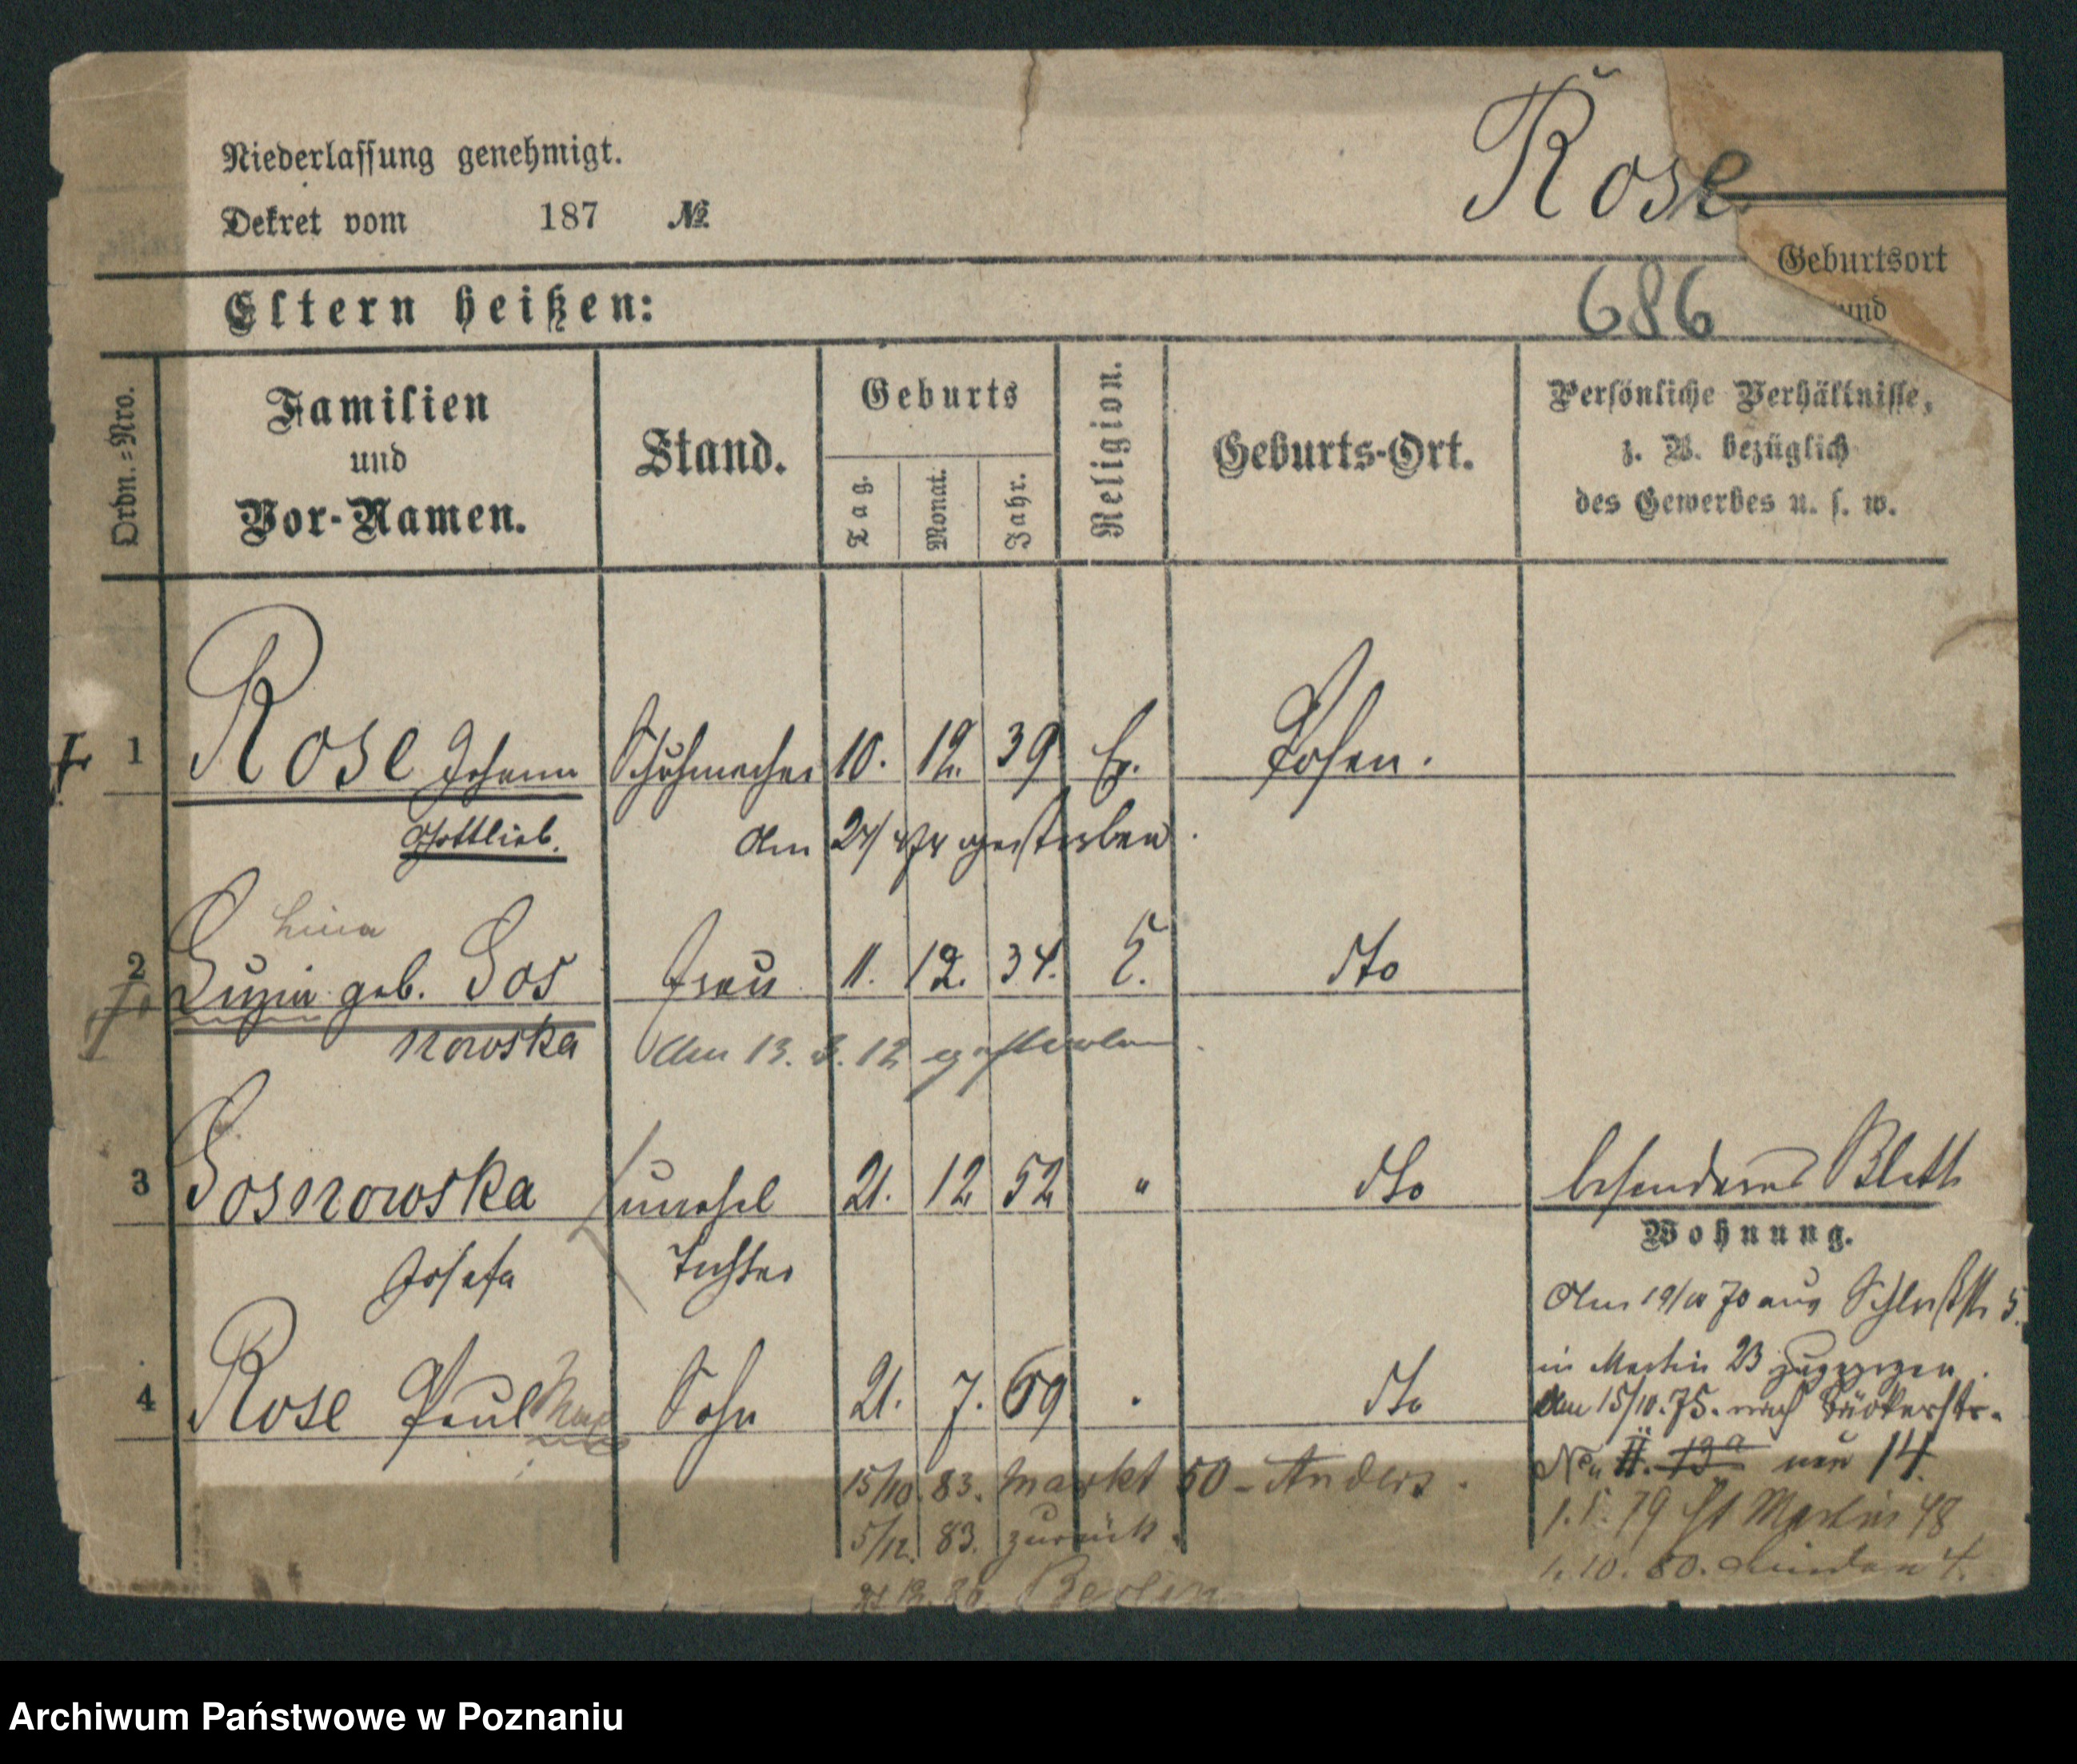 Niederlassung genehmigt.
Dekret vom 187 №
Rose
Geburtsort
und
Eltern heißen:
686
Ordn.=Nro.
Familien
und
Vor-Namen.
Stand.
Geburts
Tag.
Monat.
Jahr.
Religion.
Geburts-Ort.
Persönliche Verhältnisse,
z. B. bezüglich
des Gewerbes u. s. w.
1 Rose Johann Schuhmacher 10. 12. 39 Ev. Posen.
Gottlieb. Am gestorben.
Lina
2 geb. Sos Frau 11. 12. 34. dto
nowska Am 13. 3. 12 gestorben
3 Sosnowska unehel 21. 12 52 " dto besonderes Blatt
Wohnung.
Josefa Tochter
Am 19/10 70 aus Schloßstr 5.
4 Rose Paul Max Sohn 21. 7. 69 dto
in Martin 23 zugezogen.
Am 15/10. 75. nach Bäckerstr.
No 13a neu 14.
15/10. 83. Markt 50 - Anders.
1. 5. 79 St Martin 48
5/12. 83. zurück.
1. 10. 80. Linden 4.
Berlin
Archiwum Państwowe w Poznaniu